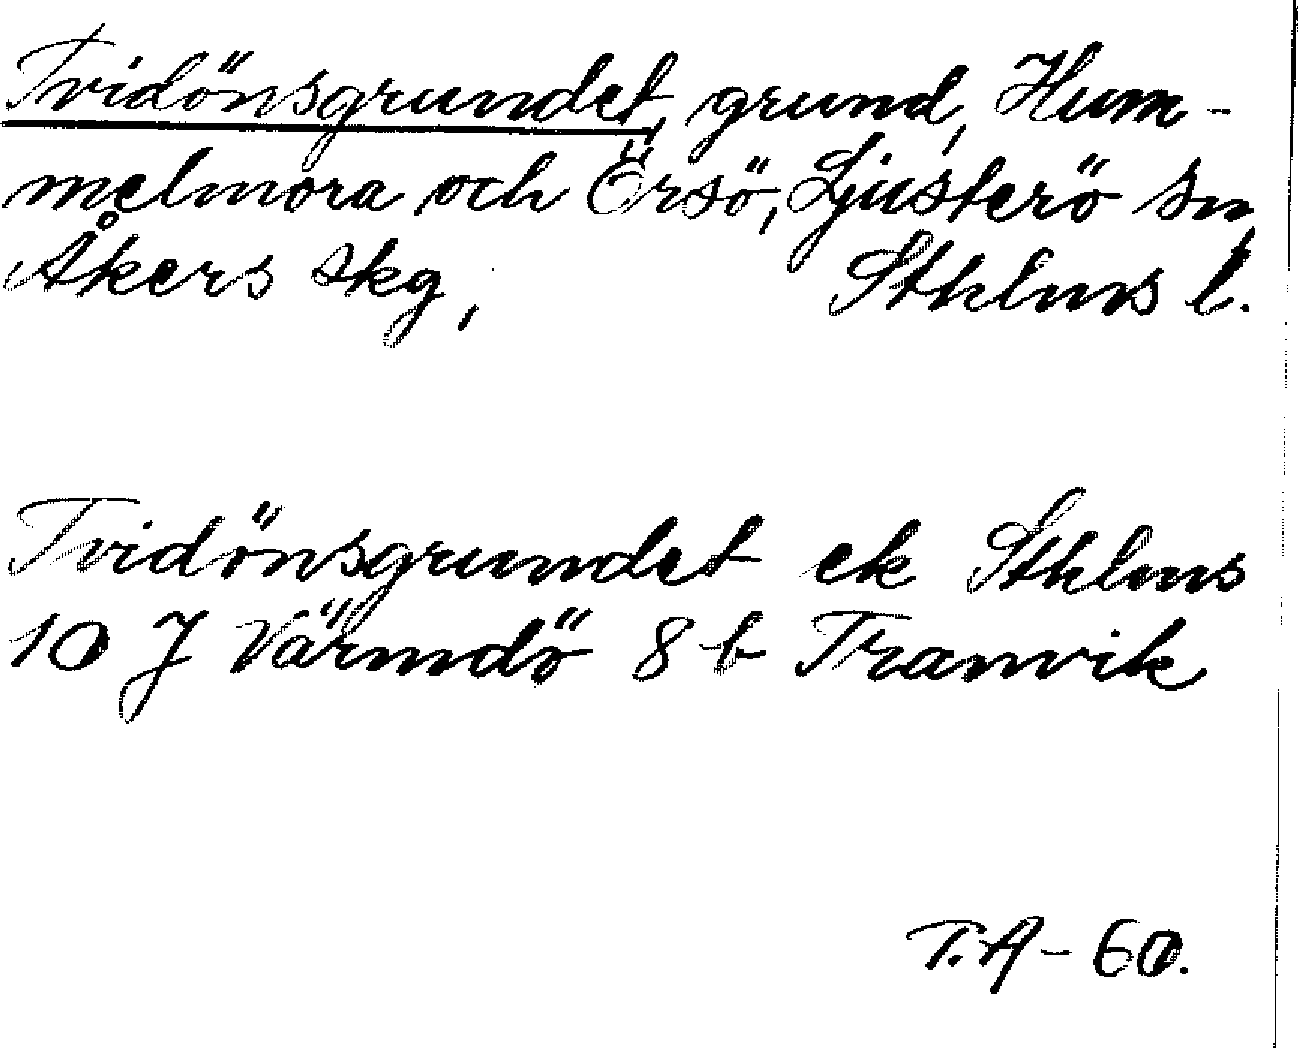 Tvidönsgrundet, grund, Hum-
melmora och Örsö, Ljusterö sn,
Åkers skg, Sthlms l.
Tvidönsgrundet ek Sthlms
10 J Värmdö 8 b Tranvik
T.A - 60.